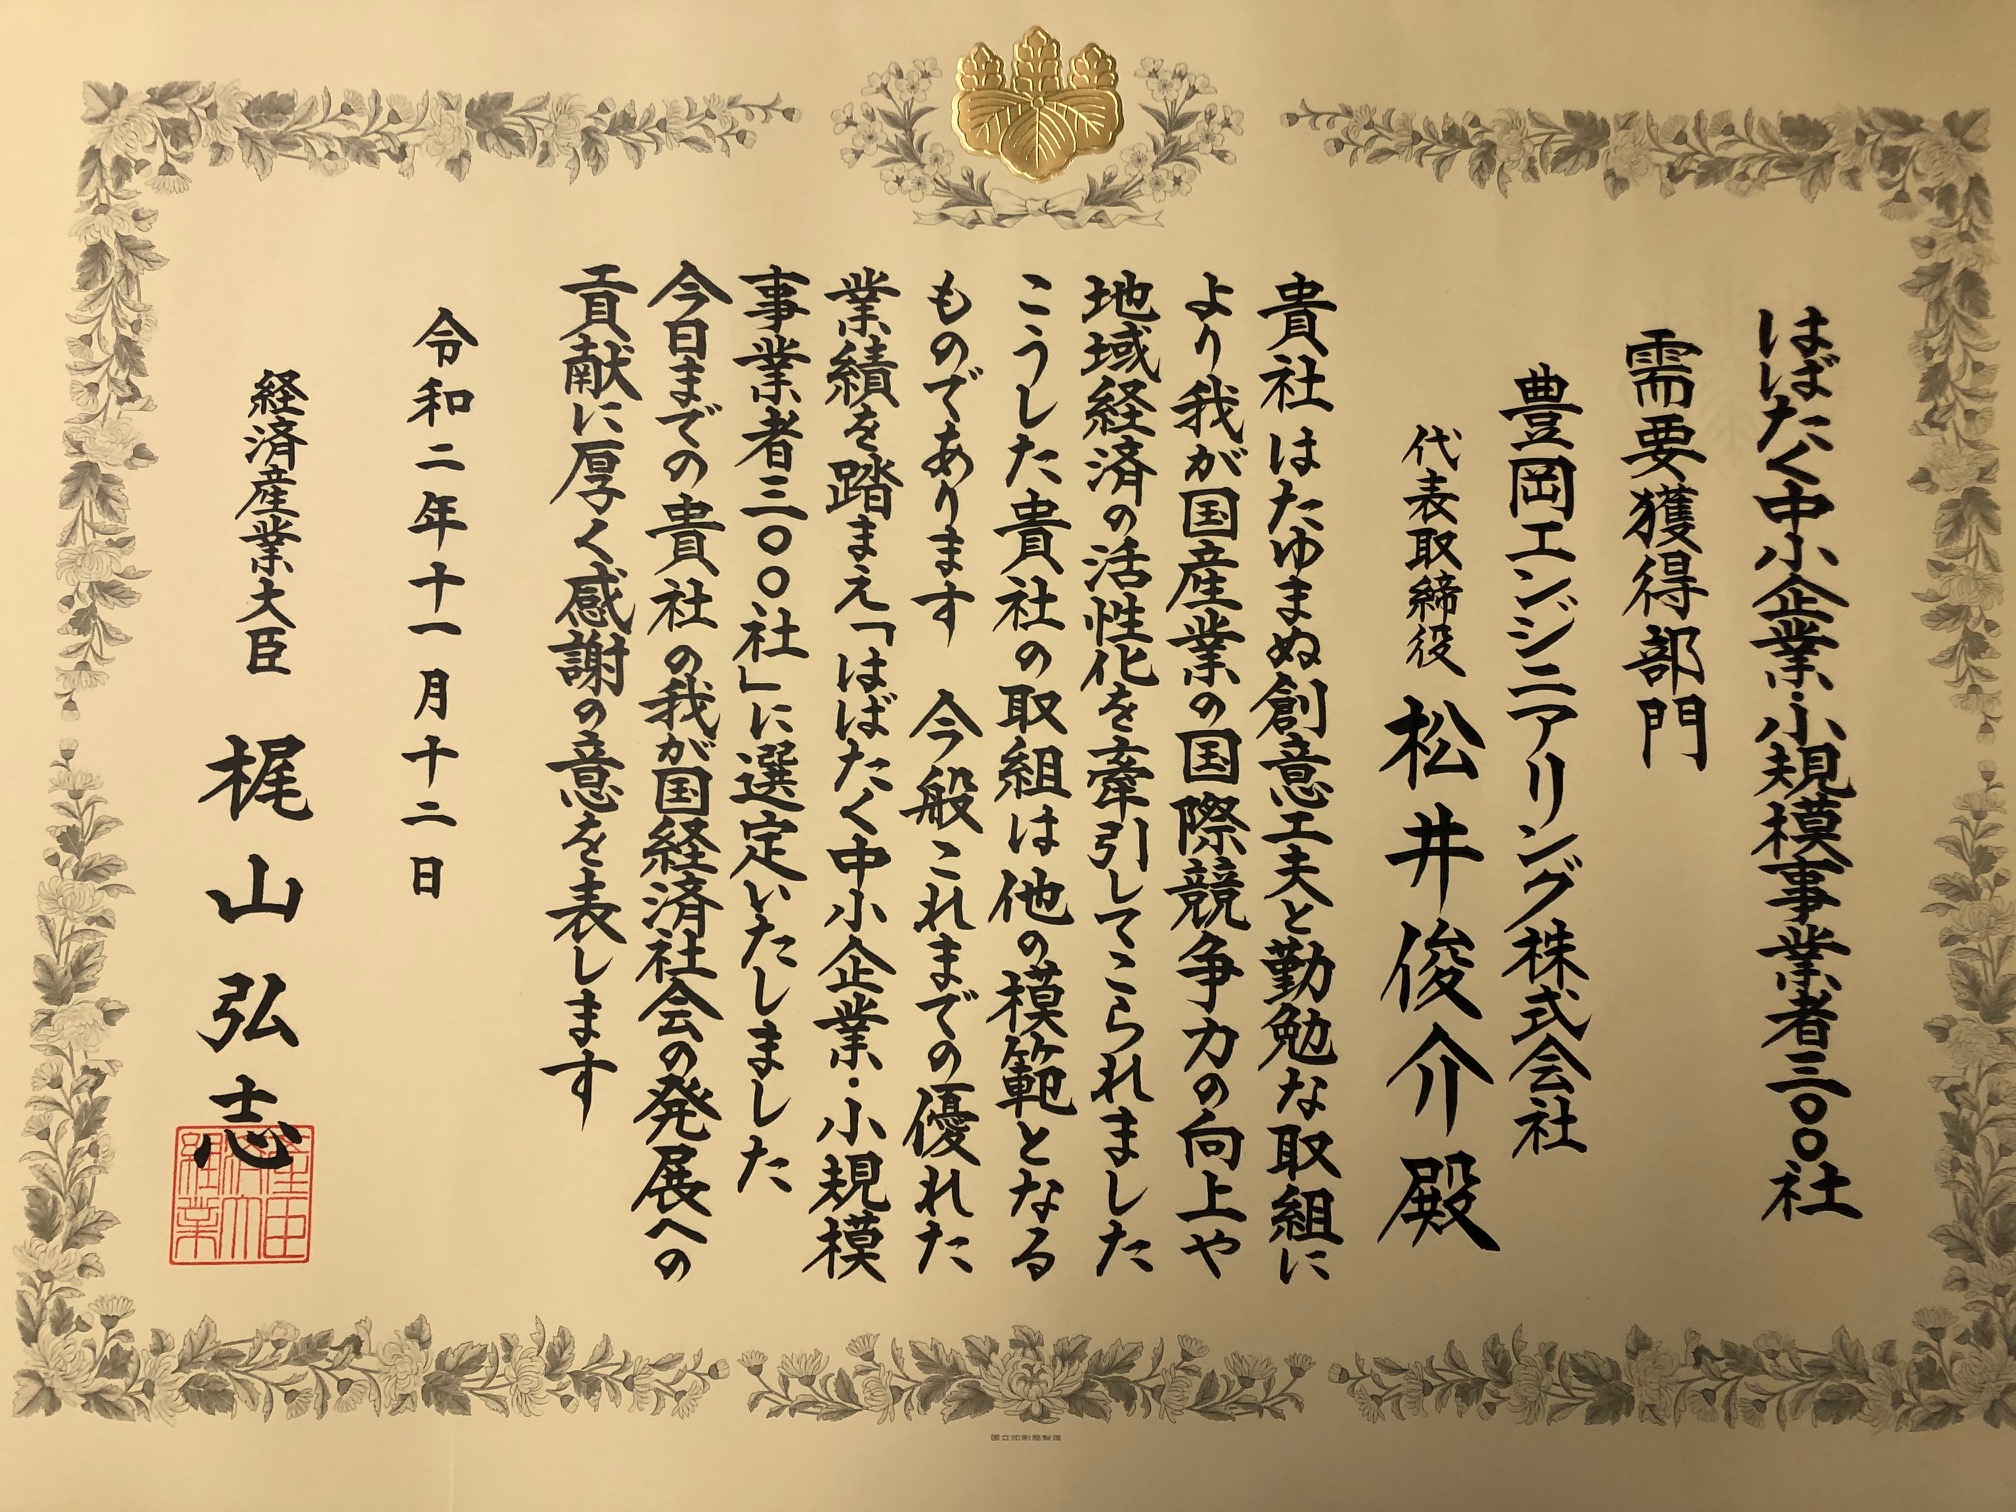 はばたく中小企業・小規模事業者三〇〇社
需要獲得部門
豊岡エンジニアリング株式会社
代表取締役 松井俊介殿
貴社はたゆまぬ創意工夫と勤勉な取組に
より我が国産業の国際競争力の向上や
地域経済の活性化を牽引してこられました
こうした貴社の取組は他の模範となる
ものであります 今般これまでの優れた
業績を踏まえ「はばたく中小企業・小規模
事業者三〇〇社」に選定いたしました
今日までの貴社の我が国経済社会の発展への
貢献に厚く感謝の意を表します
令和二年十一月十二日
経済産業大臣 梶山弘志
国立印刷局製造